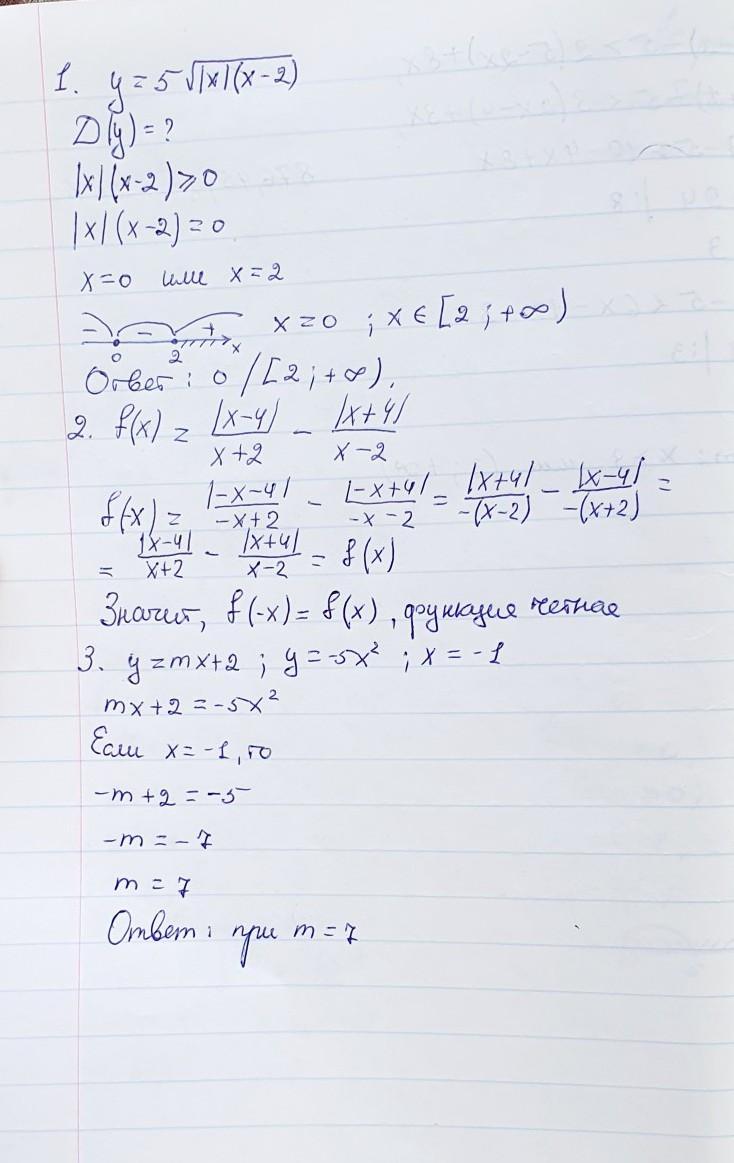 1. y = 5√|x|(x-2)
D(y) = ?
|x|(x-2)⩾0
|x|(x-2)=0
x=0 или x=2
- - + 0 2 x x=0 ; x∈[2;+∞)
Ответ: 0/[2;+∞).
2. f(x) = |x-4|/x+2 - |x+4|/x-2
f(-x) = |-x-4|/-x+2 - |-x+4|/-x-2 = |x+4|/-(x-2) - |x-4|/-(x+2) =
= |x-4|/x+2 - |x+4|/x-2 = f(x)
Значит, f(-x)=f(x), функция четная
3. y=mx+2 ; y=-5x² ; x=-1
mx+2=-5x²
Если x=-1, то
-m+2=-5
-m=-7
m=7
Ответ: при m=7